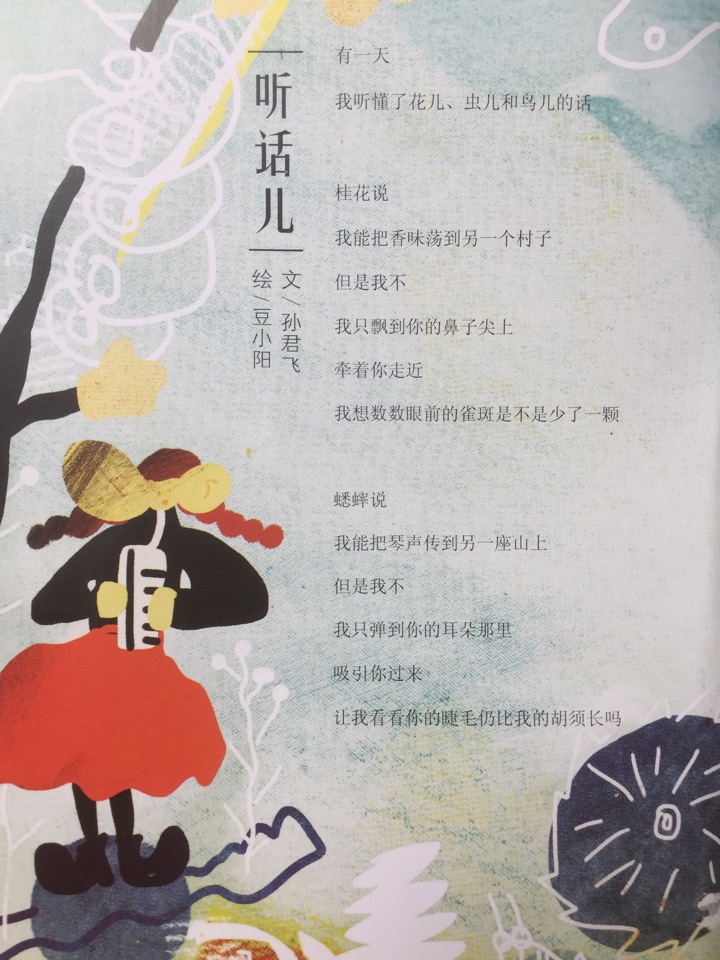 听话儿
文／孙君飞
绘／豆小阳
有一天
我听懂了花儿、虫儿和鸟儿的话
桂花说
我能把香味荡到另一个村子
但是我不
我只飘到你的鼻子尖上
牵着你走近
我想数数眼前的雀斑是不是少了一颗
蟋蟀说
我能把琴声传到另一座山上
但是我不
我只弹到你的耳朵那里
吸引你过来
让我看看你的睫毛仍比我的胡须长吗